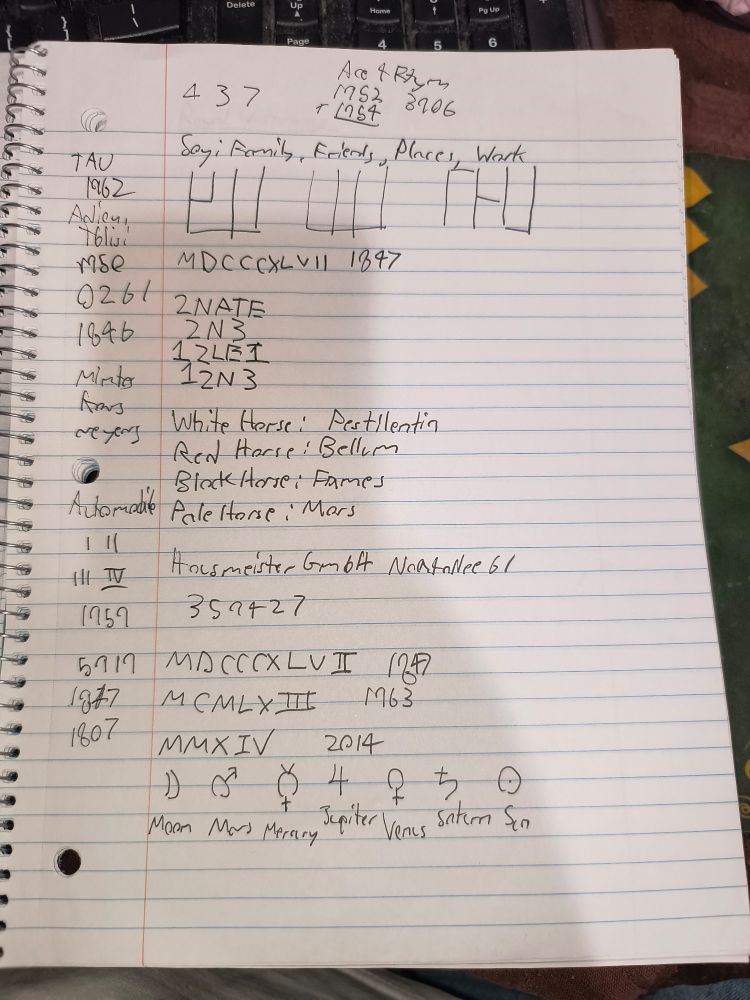 Delete
Up
Home
↑
Pg Up
Page
4
5
6
437
1752
+ 1754 3706
Say: Family, Friends, Places, Work
TAU
1962
Tblisi
MSE
MDCCCXLVII 1847
0261
2NATE
1846
2N3
12LEI
12N3
White Horse: Pestllentia
Red Horse: Bellum
Black Horse: Fames
Automobile
Pale Horse: Mors
I II
III IV
Hausmeister GmbH 61
1959
357427
5717
MDCCCXLVII 1847
1877
MCMLXIII 1963
1807
MMXIV 2014
☽ ♂ ☿ ♃ ♀ ♄ ☉
Moon Mars Mercury Jupiter Venus Saturn Sun